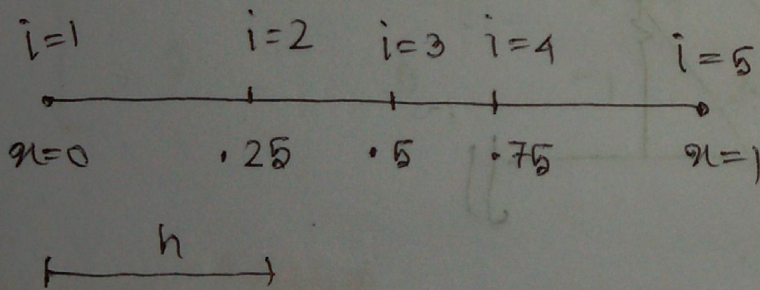 i=1 i=2 i=3 i=4 i=5
x=0 .25 .5 .75 x=1
h